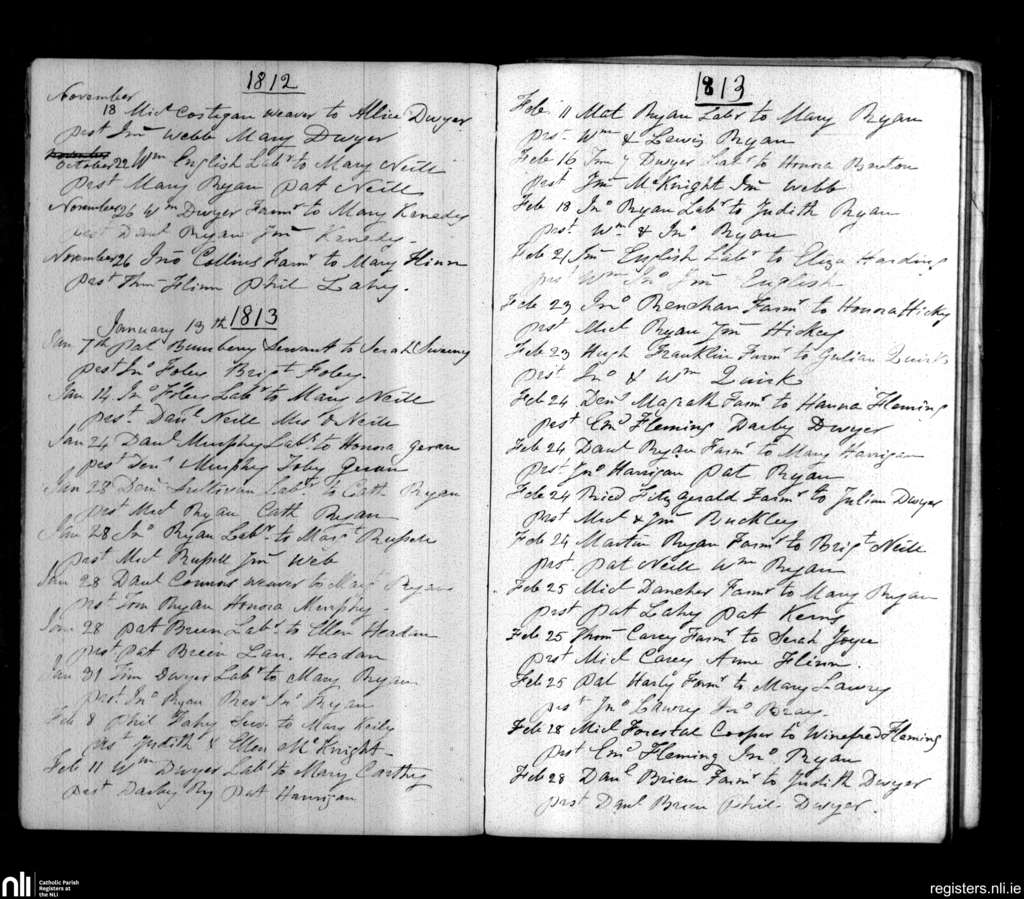 1812
November
18 Micl Costigan weaver to Allice Dwyer
prst Jms Webb Mary Dwyer
October 22 Wm English Labr to Mary Neill
prst Mary Ryan Pat Neill
November 26 Wm Dwyer Farmr to Mary Kenedy
prst Danl Ryan Jms Kenedy
November 26 Jno Collins Farmr to Mary Flinn
prst Thm Flinn Phil Lahy.
January 13th 1813
Jan 7th Pat Bunsberry Servant to Serah Sweeny
prst Jno Foley Brigt Foley.
Jan 14 Jno Foley Labr to Mary Neill
prst. Danl Neill Mrs Neill
Jan 24 Danl Murphy Labr to Honora Geran
prst Denl Murphy Toby Geran
Jan 28 Denl Sullivan Labr to Cath Ryan
prst Micl Ryan Cath Ryan
Jan 28 Jno Ryan Labr. to Margt Russell
prst Micl Russell Jms Web
Jan 28 Danl Connors weaver to Margt Ryan
prst Tom Ryan Honora Murphy
Jan 28 Pat Breen Labr. to Ellen Headan
prst Pat Breen Lau. Headan
Jan 31 Tim Dwyer Labr to Mary Ryan
prst. Jno Ryan Revd Jno Ryan
Feb 8 Phil Fahy to Mary Keily
prst Judith & Ellen McKnight
Feb 11 Wm Dwyer Labr to Mary Carthy
prst Darby Ry Pat Hannigan
1813
Feb 11 Mat Ryan Labr to Mary Ryan
prst. Wm & Lewis Ryan
Feb 16 Timy Dwyer Labr to Honora Bruton
prst Jms McKnight Jms Webb
Feb 18 Jno Ryan Labr to Judith Ryan
prst. Wm & Jno Ryan
Feb 21 Jms English Labr to Eliza Harding
prst Wm Jno Jms English
Feb 23 Jno Renehan Farmr to Honora Hicky
prst Micl Ryan Jms Hickey
Feb 23 Hugh Franklin Farmr to Julian Quirk
prst. Jno & Wm Quirk
Feb 24 Denl Magrath Farmr to Hanna Fleming
prst Emd Fleming Darby Dwyer
Feb 24 Danl Ryan Farmr to Mary Harrigan
prst Jno Harrigan Pat Ryan
Feb 24 Ricd Fitzgerald Farmr to Julian Dwyer
prst Micl & Jms Buckley
Feb 24 Martin Ryan Farmr to Brigt Neill
prst Pat Neill Wm Ryan
Feb 25 Micl Dancher Farmr to Mary Ryan
prst Pat Lahy Pat Kerns
Feb 25 Thom Carey Farmr to Serah Joyce
prst Micl Carey Anne Flinn.
Feb 25 Pat Harty Farmr to Mary Lawry
prst Jno Lawry Jno Bray.
Feb 28 Micl Forestal Cooper to Winefred Fleming
prst Emd Fleming Jno Ryan
Feb 28 Danl Brien Farmr to Judith Dwyer
prst Danl Brien Phil Dwyer.
nli
Catholic Parish
Registers at
the NLI
registers.nli.ie